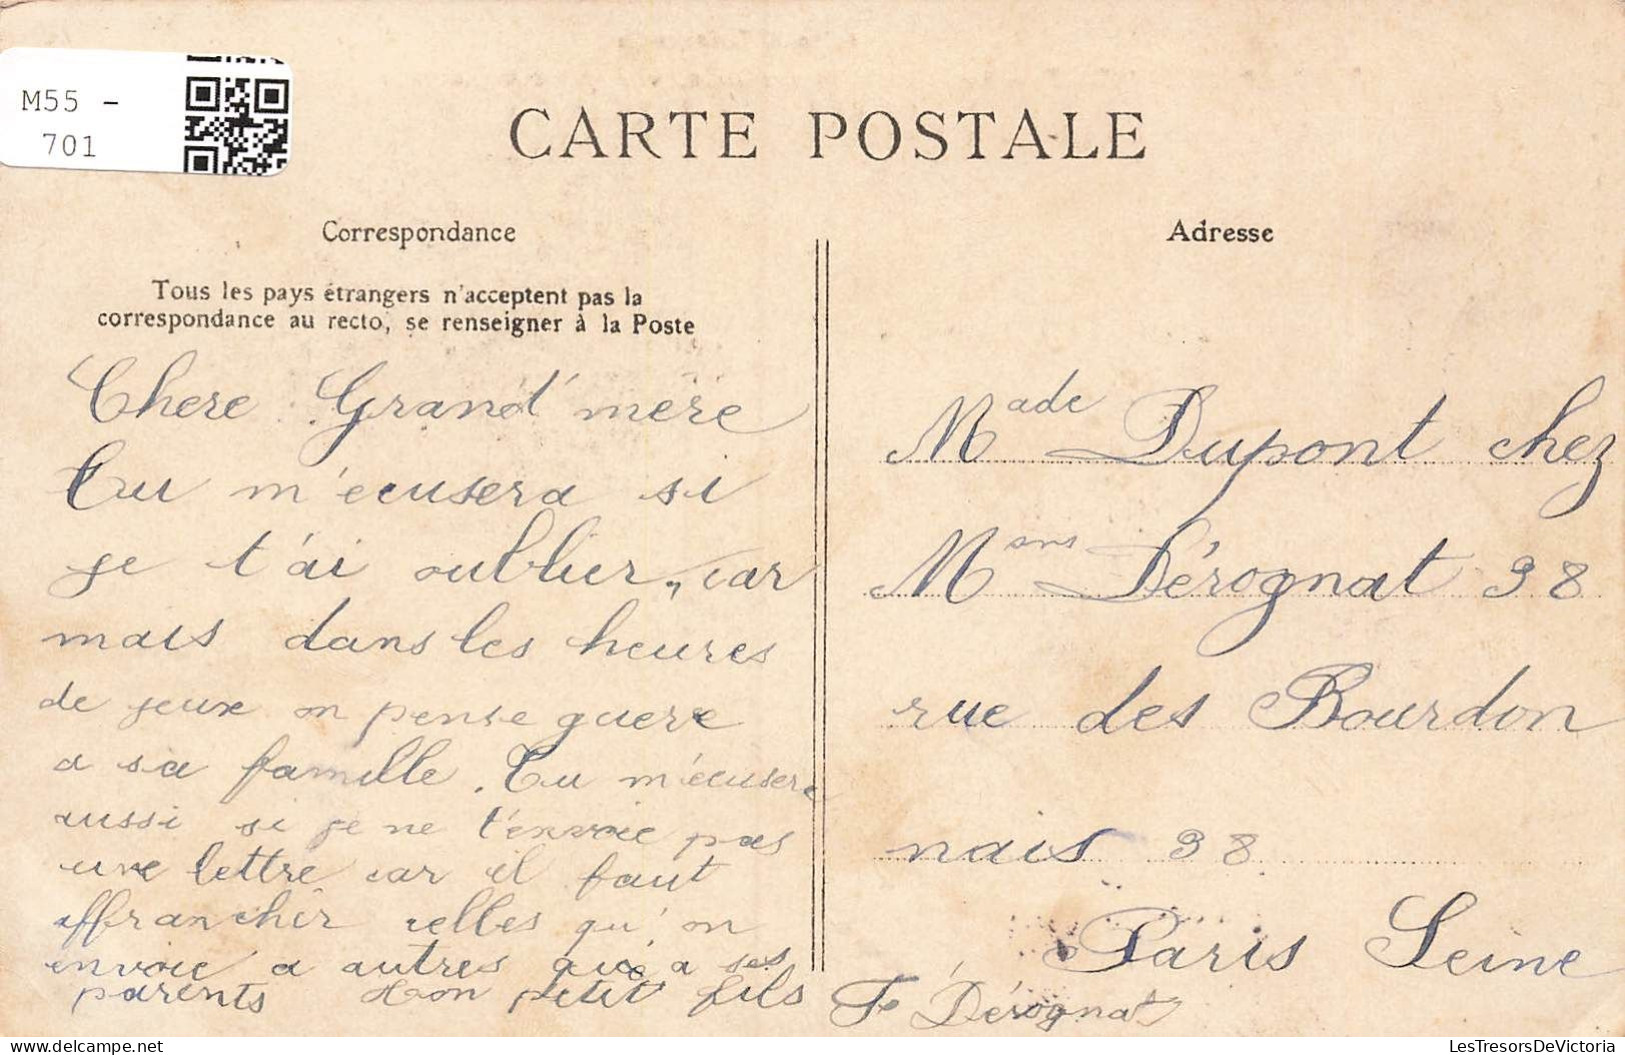 M55 -
701
CARTE POSTALE
Correspondance
Tous les pays étrangers n'acceptent pas la
correspondance au recto, se renseigner à la Poste
Chere Grand'mère
Tu m'ecusera si
je t'ai oublier, car
mais dans les heures
de jeux on pense guere
a sa famille. Tu m'écusera
aussi si je ne t'envoie pas
une lettre car il faut
affranchir celles qu'on
envoie a autres que a ses
parents Ton petit fils
F. Dérognat
Adresse
Made Dupont chez
Mons Dérognat 38
rue des Bourdon
nais 38
Paris Seine
LesTresorsDeVictoria
delcampe.net